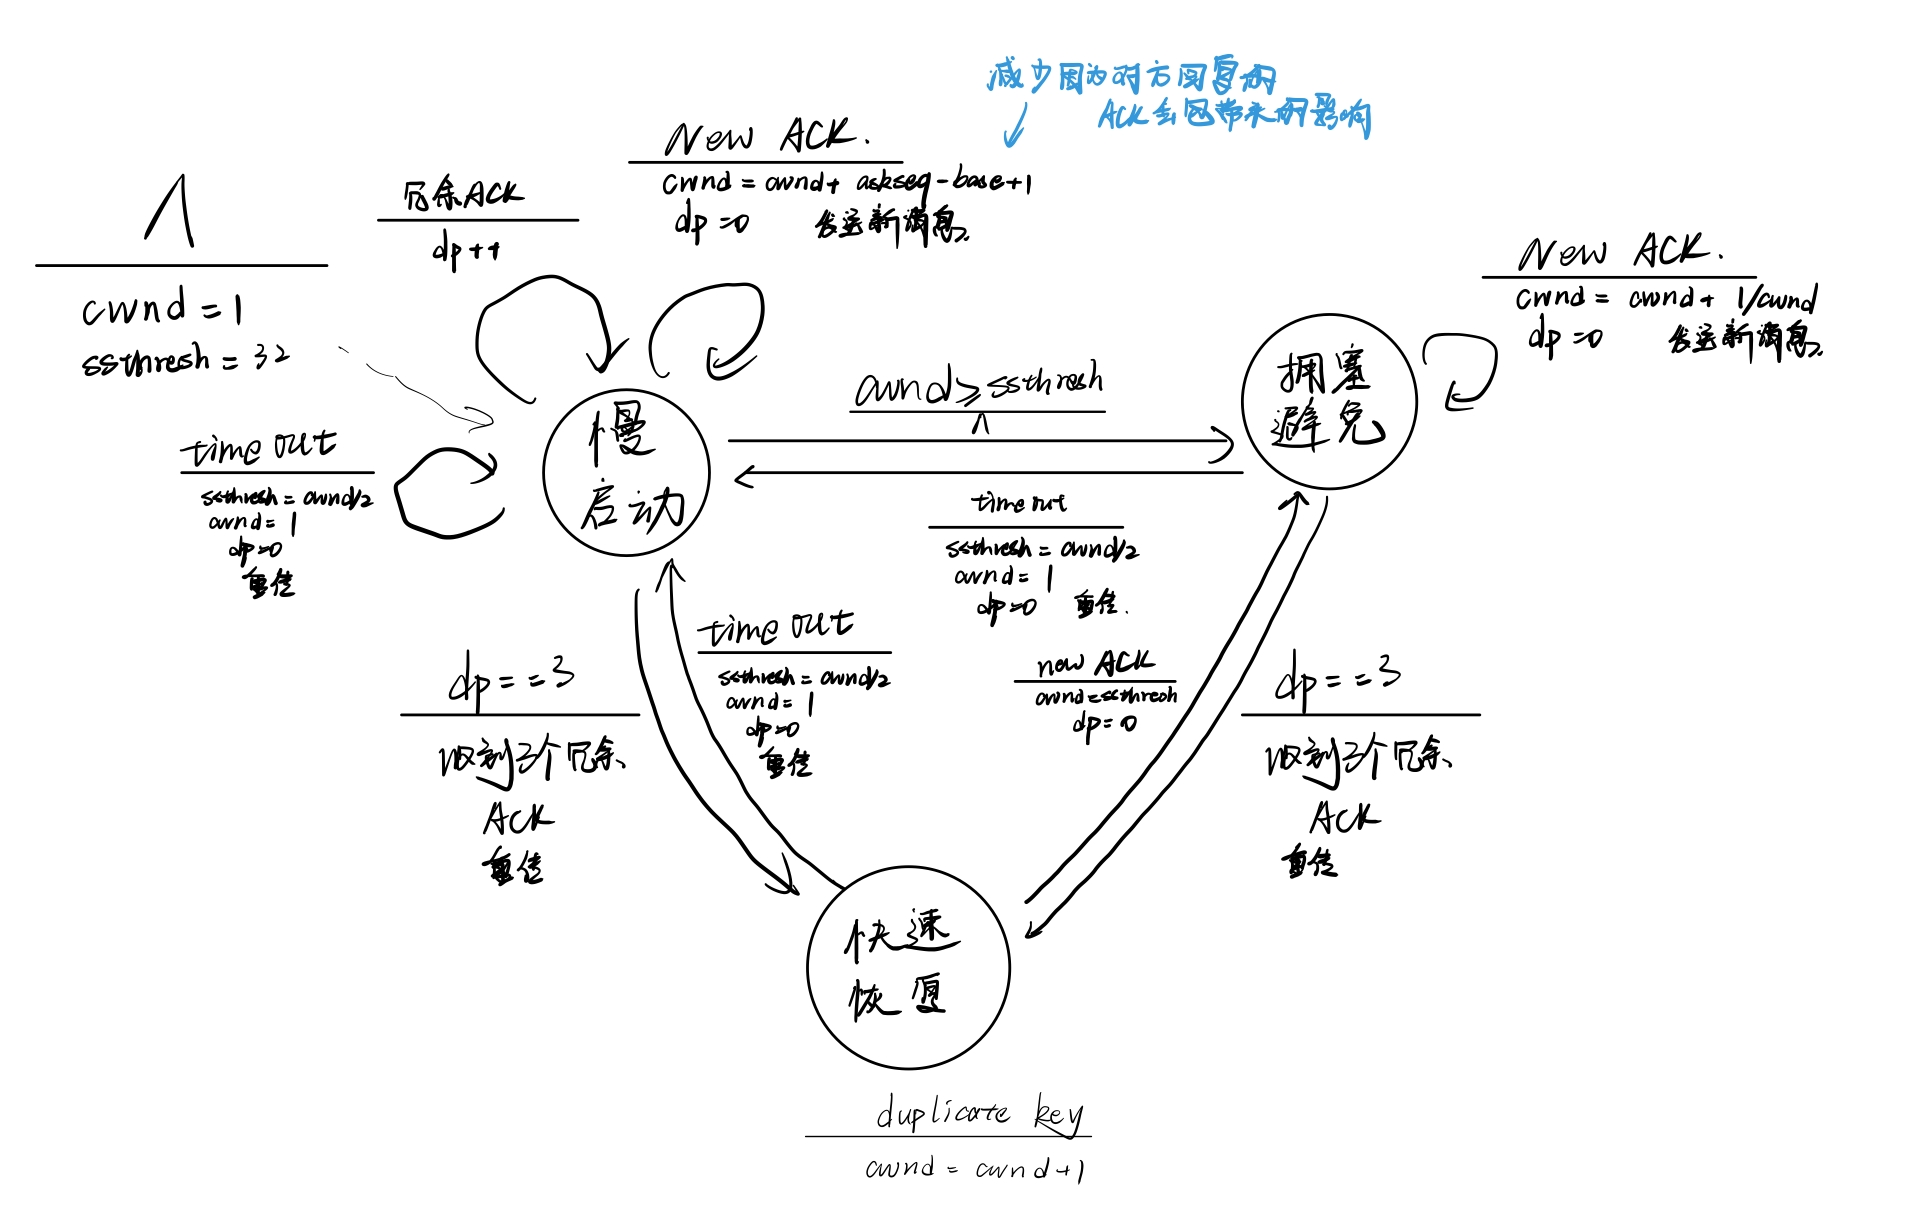 减少因为对方回复的
ACK丢包带来的影响
New ACK.
cwnd = cwnd + askseq-base+1
dp=0 发送新消息.
冗余ACK
dp++
Λ
cwnd = 1
ssthresh = 32
New ACK.
cwnd = cwnd + 1/cwnd
dp=0 发送新消息.
慢
启动
cwnd≥ssthresh
Λ
拥塞
避免
time out
ssthresh = cwnd/2
cwnd = 1
dp=0
重传
time out
ssthresh = cwnd/2
cwnd = 1
dp=0 重传.
time out
ssthresh = cwnd/2
cwnd = 1
dp=0
重传
new ACK
cwnd=ssthresh
dp=0
dp==3
收到3个冗余
ACK
重传
dp==3
收到3个冗余
ACK
重传
快速
恢复
duplicate key
cwnd = cwnd+1